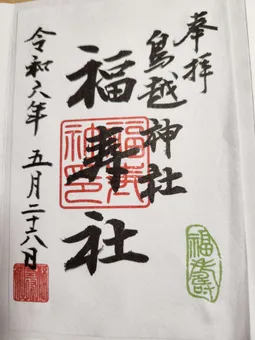 奉拝
鳥越神社
福寿社
令和六年 五月二十六日
福寿神印
福寿